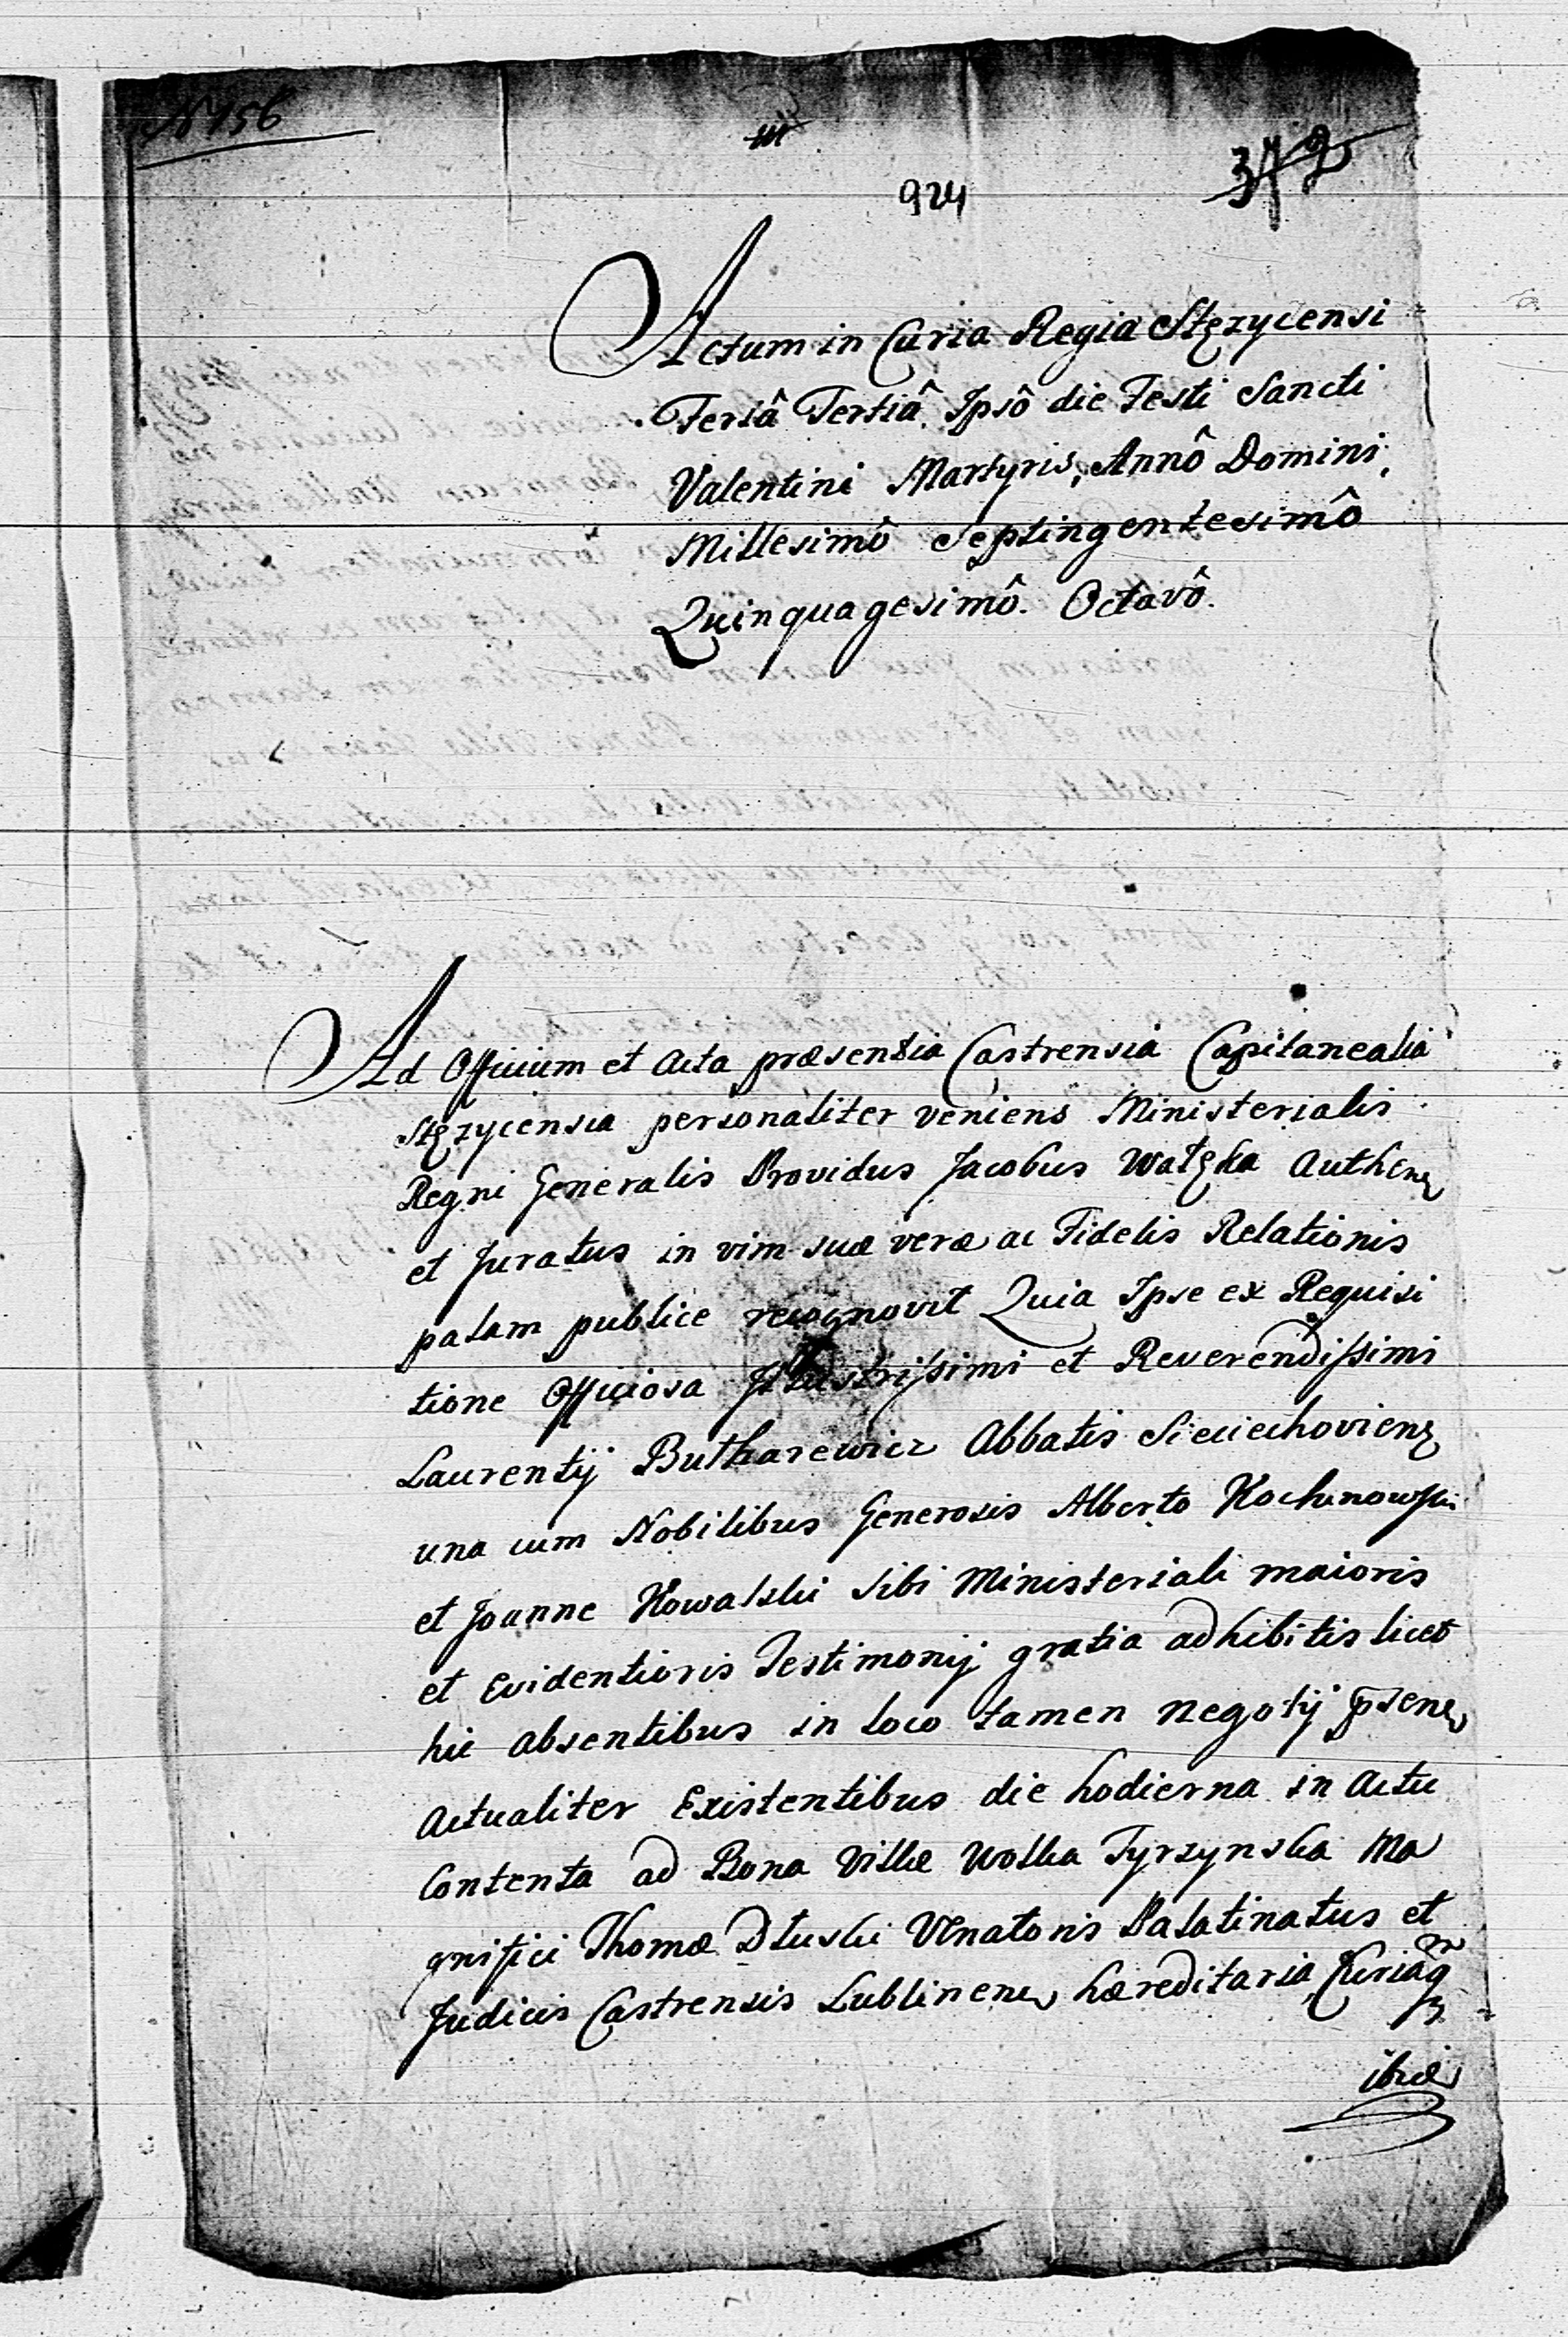 N 156
372
924
Actum in Curia Regia Stęzycensi
Feriâ Tertiâ Ipsô die Festi Sancti
Valentini Martyris, Annô Domini
Millesimô Septingentesimô
Quinquagesimô Octavô.
Ad Officium et Acta præsentia Castrensia Capitanealia
Stęzycensia personaliter veniens Ministerialis
Regni Generalis Providus Jacobus Watęka Authen
et Juratus in vim suæ veræ ac Fidelis Relationis
palam publice recognovit Quia Ipse ex Requisi
tione Officiosa Illustrissimi et Reverendissimi
Laurentij Butharewicz Abbatis Sieciechovien
una cum Nobilibus Generosis Alberto Kochanowski
et Joanne Kowalski sibi Ministeriali maioris
et Evidentioris Testimonij gratia adhibitis licet
hic absentibus in loco tamen negotij psen
actualiter Existentibus die hodierna in Actu
Contenta ad Bona Villæ Wolka Tyrzynska Ma
gnifici Thomæ Dłuski Venatoris Palatinatus et
Judicis Castrensis Lublinen hæreditaria Curiaq